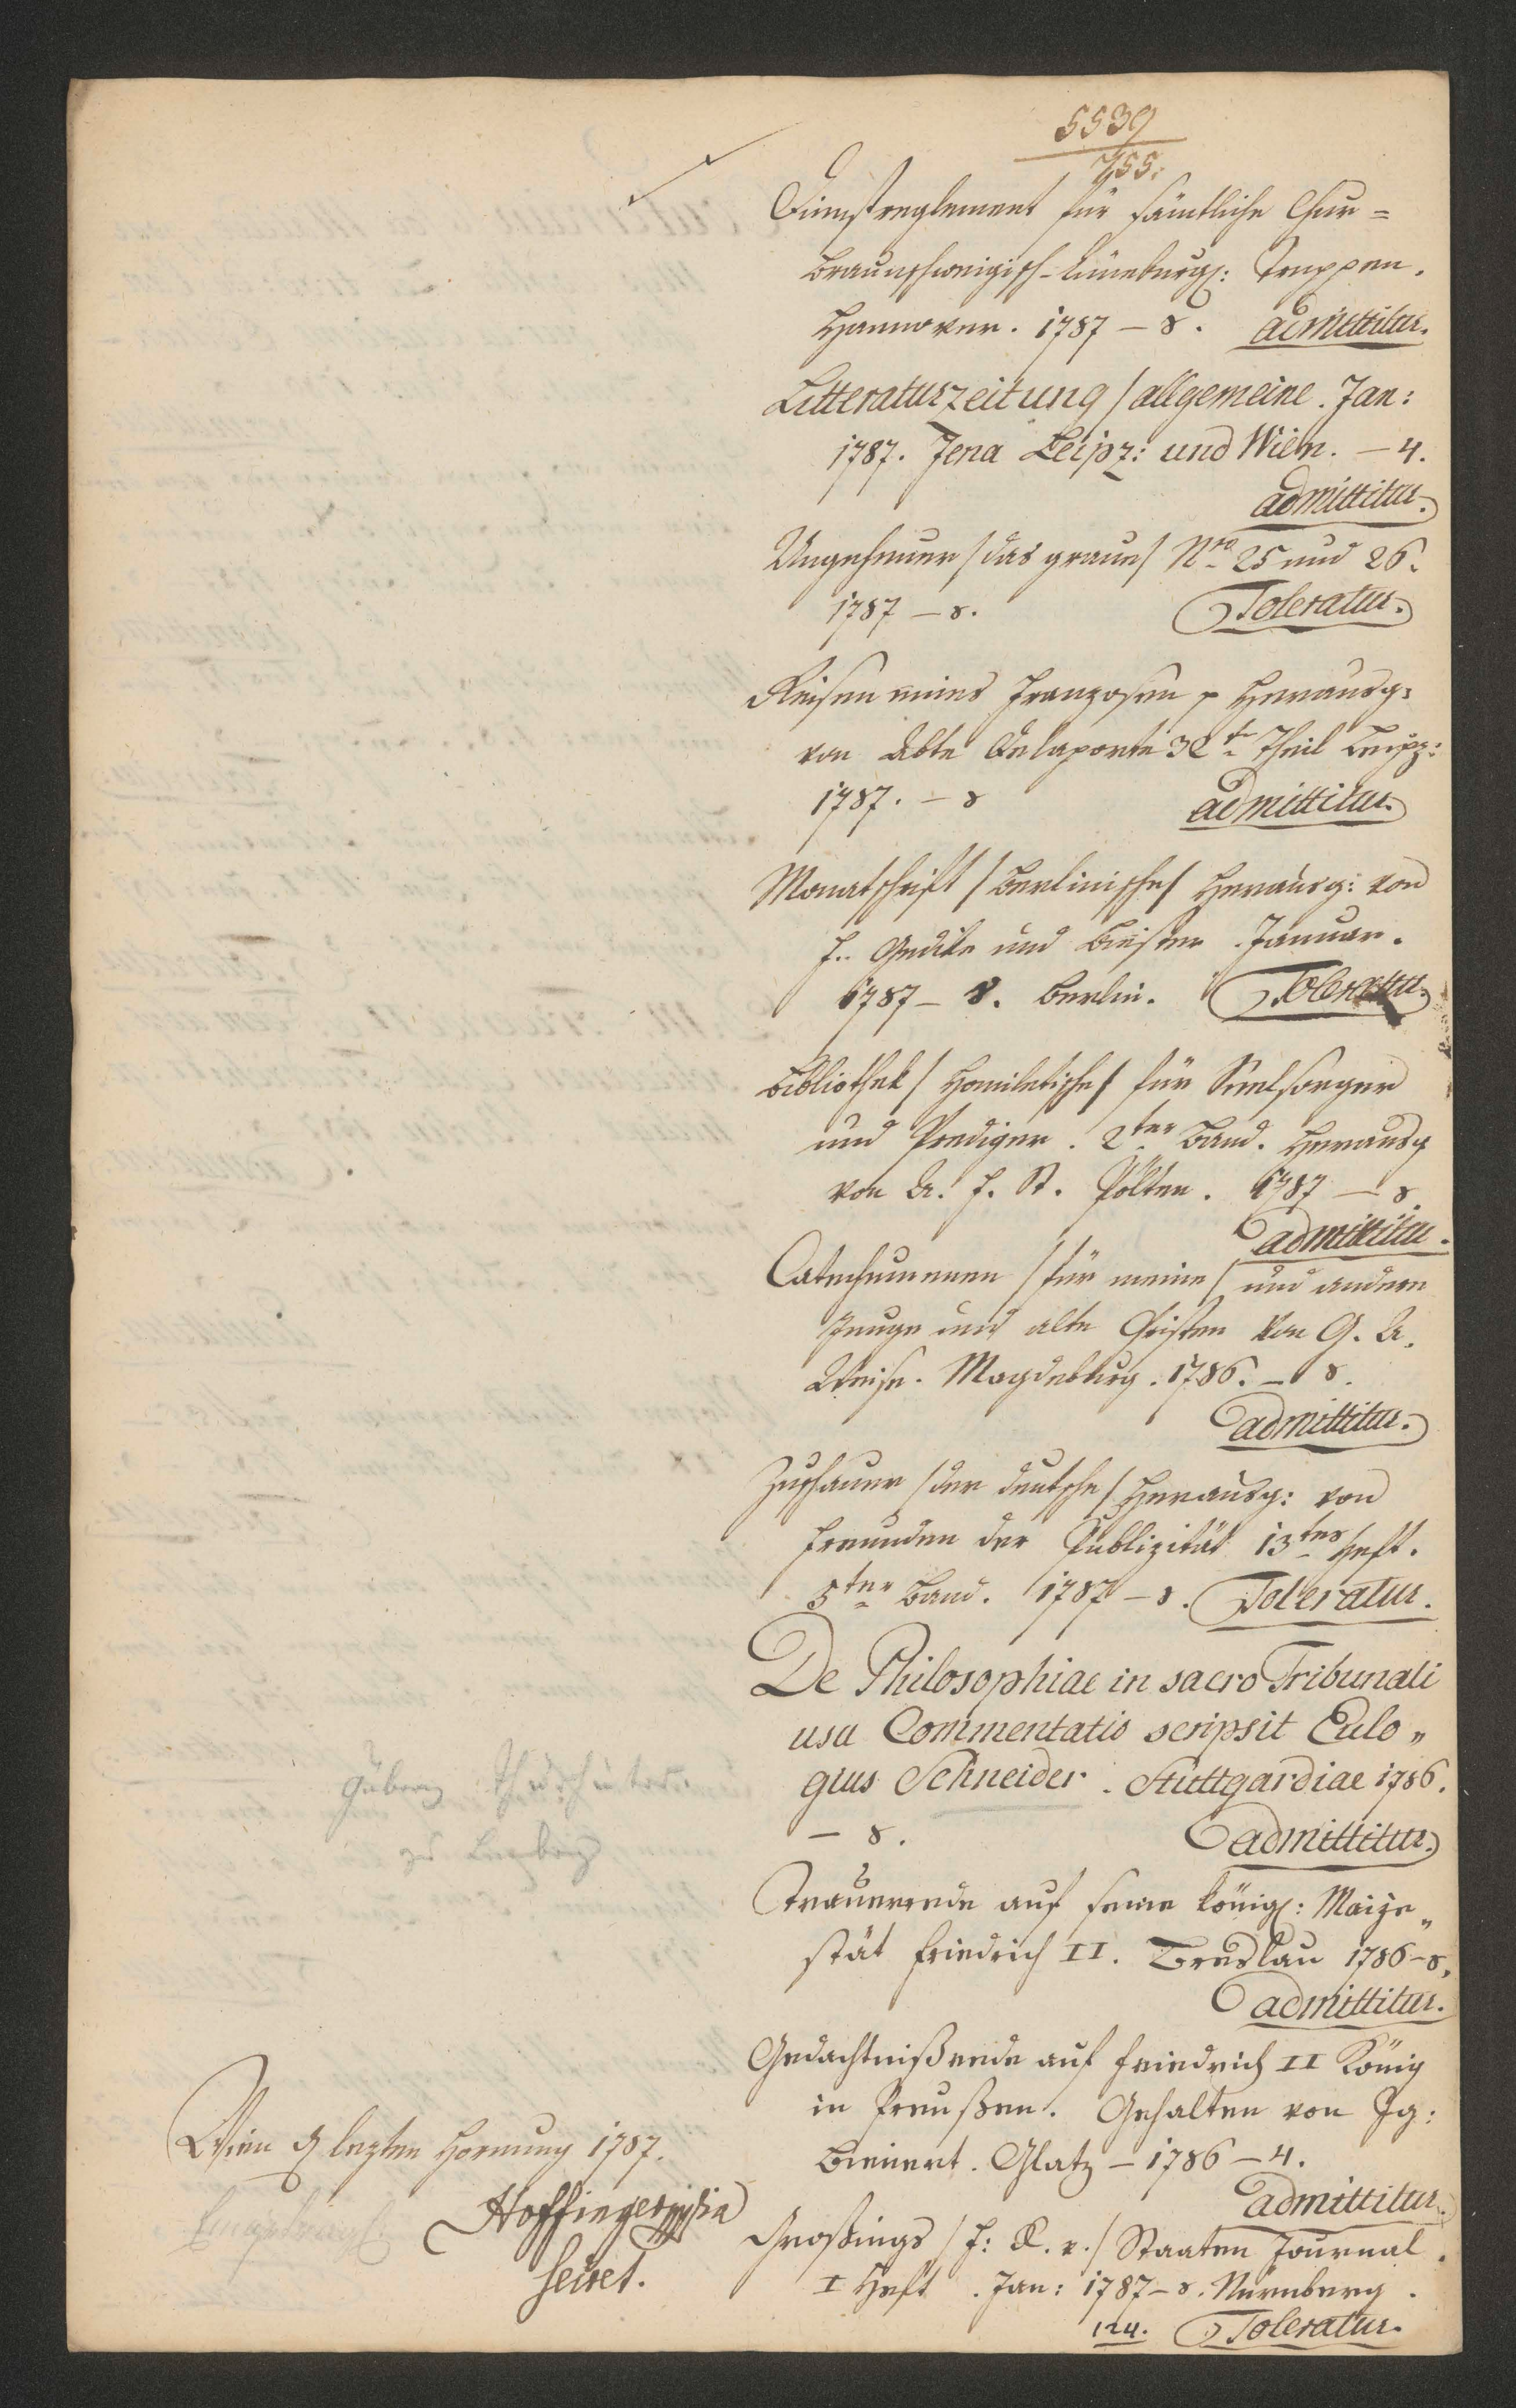 5539
755.
Dienstreglement für sämtliche Chur=
braunschweigisch-Lüneburg: Truppen.
Hannover. 1787 – 8. admittitur.
Litteraturzeitung / allgemeine. Jan:
1787. Jena Leipz: und Wien. – 4.
admittitur.
Ungeheuer / das graue / Nro 25 und 26.
1787 – 8. Toleratur.
Reisen eines Franzosen p Herausg:
von Abte Delaporte 32te Theil Leipz:
1787. – 8 admittitur.
Monatschrift / Berlinische / Herausg: von
F. Gedike und Biester. Januar.
1787 – 8. Berlin. Toleratur.
Bibliothek / Homiletische / für Seelsorger
und Prediger. 2ter Band. Herausg
von A. F. St. Pölten. 1787 – 8.
admittitur.
Catechumenen / für meine / und andere
Junge und alte Christen von G. A.
Weise. Magdeburg. 1786. – 8.
admittitur.
Zuschauer / der deutsche / Herausg: von
Freunden der Publizität 13tes Heft.
5ter Band. 1787 – 8. Toleratur.
De Philosophiae in sacro Tribunali
usu Commentatio scripsit Eulo„
gius Schneider. Stuttgardiae 1786.
– 8. admittitur.
Trauerrede auf seine königl: Maije„
stät Friedrich II. Breslau 1786 – 8.
admittitur.
Gedachtnißrede auf Friedrich II König
in Preußen. Gehalten von Ig:
Bienert. Glatz – 1786 – 4.
admittitur.
Großings / F: R. v. / Staaten Journal.
I Heft. Jan: 1787 – 8. Nürnberg.
124. Toleratur.
Wien d letzten Hornung 1787.
Hoffinger
Secret.